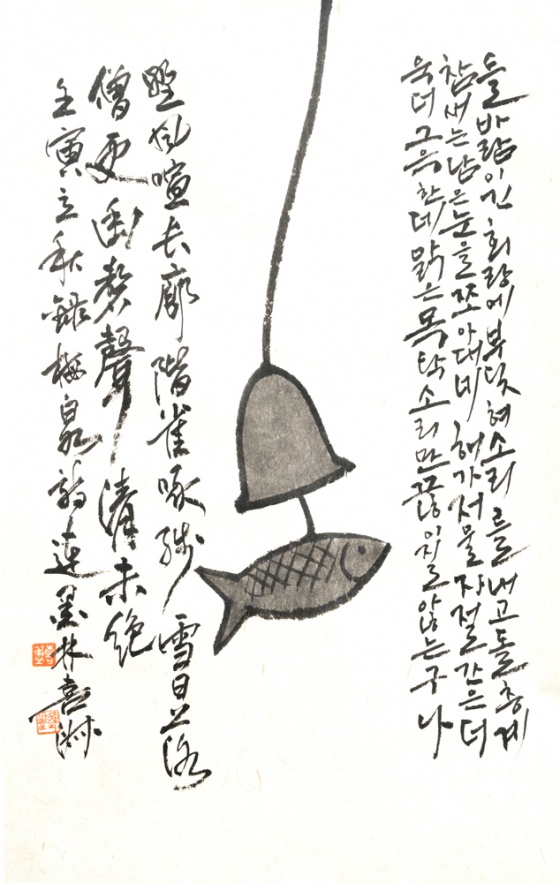 들바람이 긴 회랑에 부딪혀 소리를 내고 돌층계
참새는 남은 눈을 쪼아대네 해가 저물자 절간은 더
욱 더 그윽한데 맑은 목탁소리만 끊이지를 않는구나
野風喧長廊階雀啄殘雪日落
僧更幽磬聲清未絶
壬寅立秋錄梅泉詩 墨林喜